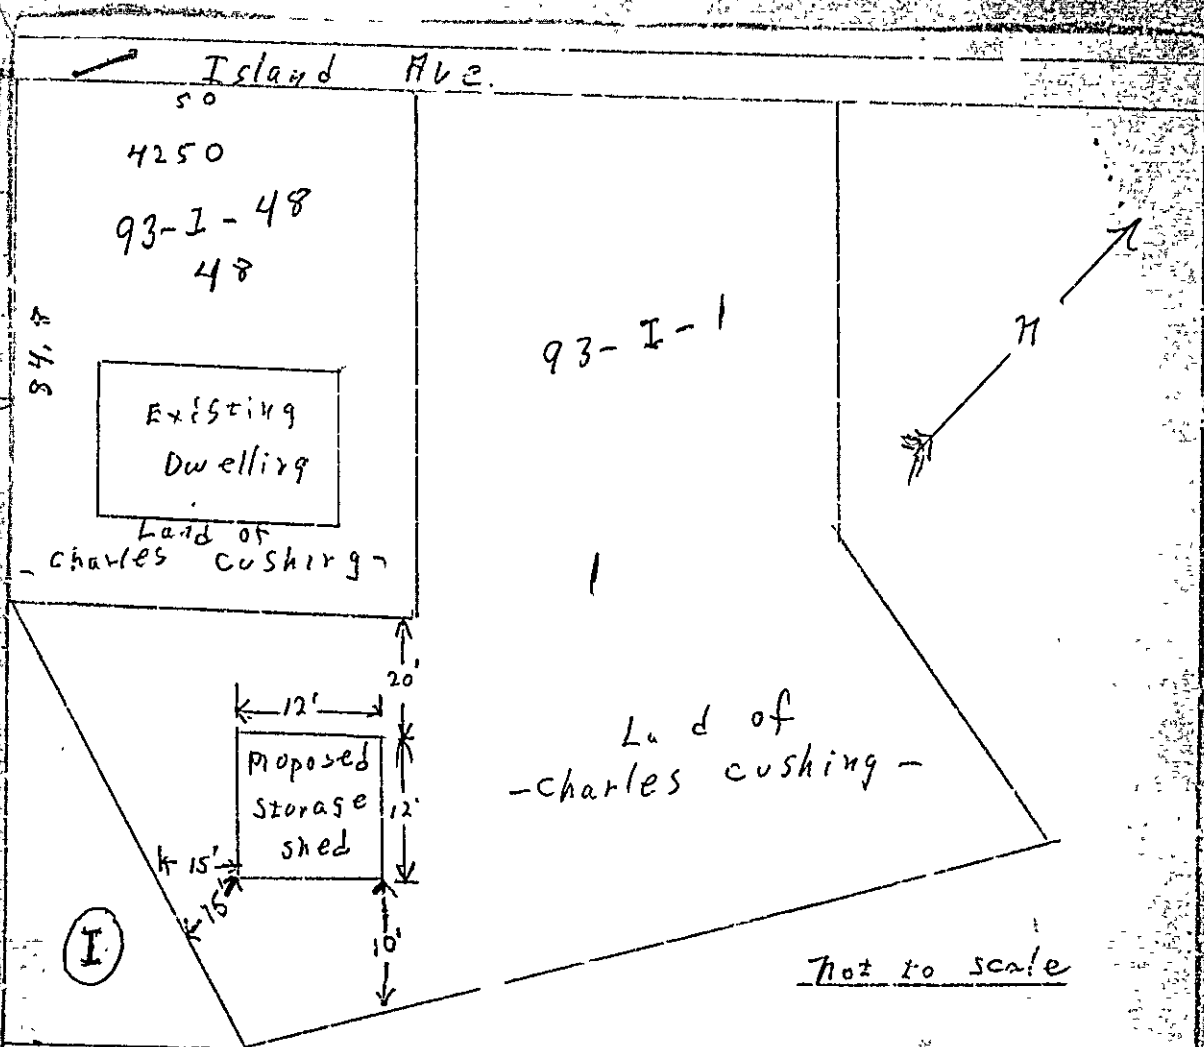 Island Ave.
50
4250
93-I-48
48
84.8
Existing
Dwelling
Land of
- Charles Cushing -
93-I-1
N
1
20'
12'
Proposed
Storage
shed
12'
15'
15'
10'
La d of
- Charles Cushing -
I
not to scale